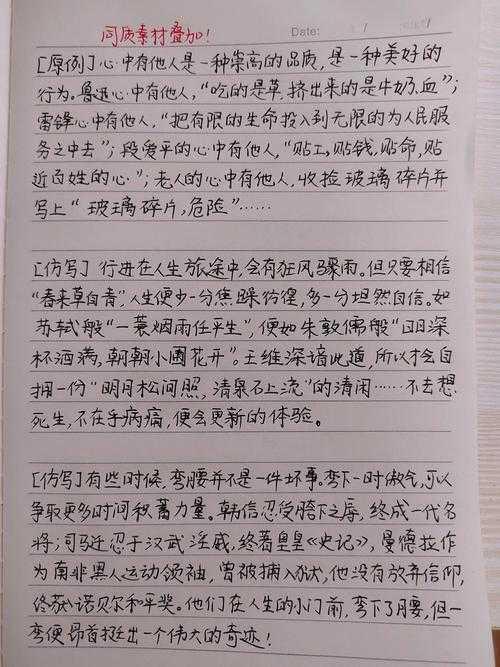 同质素材叠加！
Date:
[原例]心中有他人是一种崇高的品质，是一种美好的
行为。鲁迅心中有他人，“吃的是草，挤出来的是牛奶、血”；
雷锋心中有他人，“把有限的生命投入到无限的为人民服
务之中去”；段爱平的心中有他人，“贴工，贴钱，贴命，贴
近百姓的心”；老人的心中有他人，收捡玻璃碎片并
写上“玻璃碎片，危险”……
[仿写]行进在人生旅途中，会有狂风骤雨。但只要相信
“春来草自青”，人生便少一分焦躁彷徨，多一分坦然自信。如
苏轼般“一蓑烟雨任平生”，便如朱敦儒般“日日深
杯酒满，朝朝小圃花开”。王维深谙此道，所以才会自
拥一份“明月松间照，清泉石上流”的清闲……不去想
死生，不在乎病痛，便会更新的体验。
[仿写]有些时候，弯腰并不是一件坏事。弯下一时傲气，可以
争取更多时间积蓄力量。韩信忍受胯下之辱，终成一代名
将；司马迁忍于汉武淫威，终著皇皇《史记》，曼德拉作
为南非黑人运动领袖，曾被捕入狱，他没有放弃信仰，
终获诺贝尔和平奖。他们在人生的小门前，弯下了腰，但一
弯便昂首挺出一个伟大的奇迹！